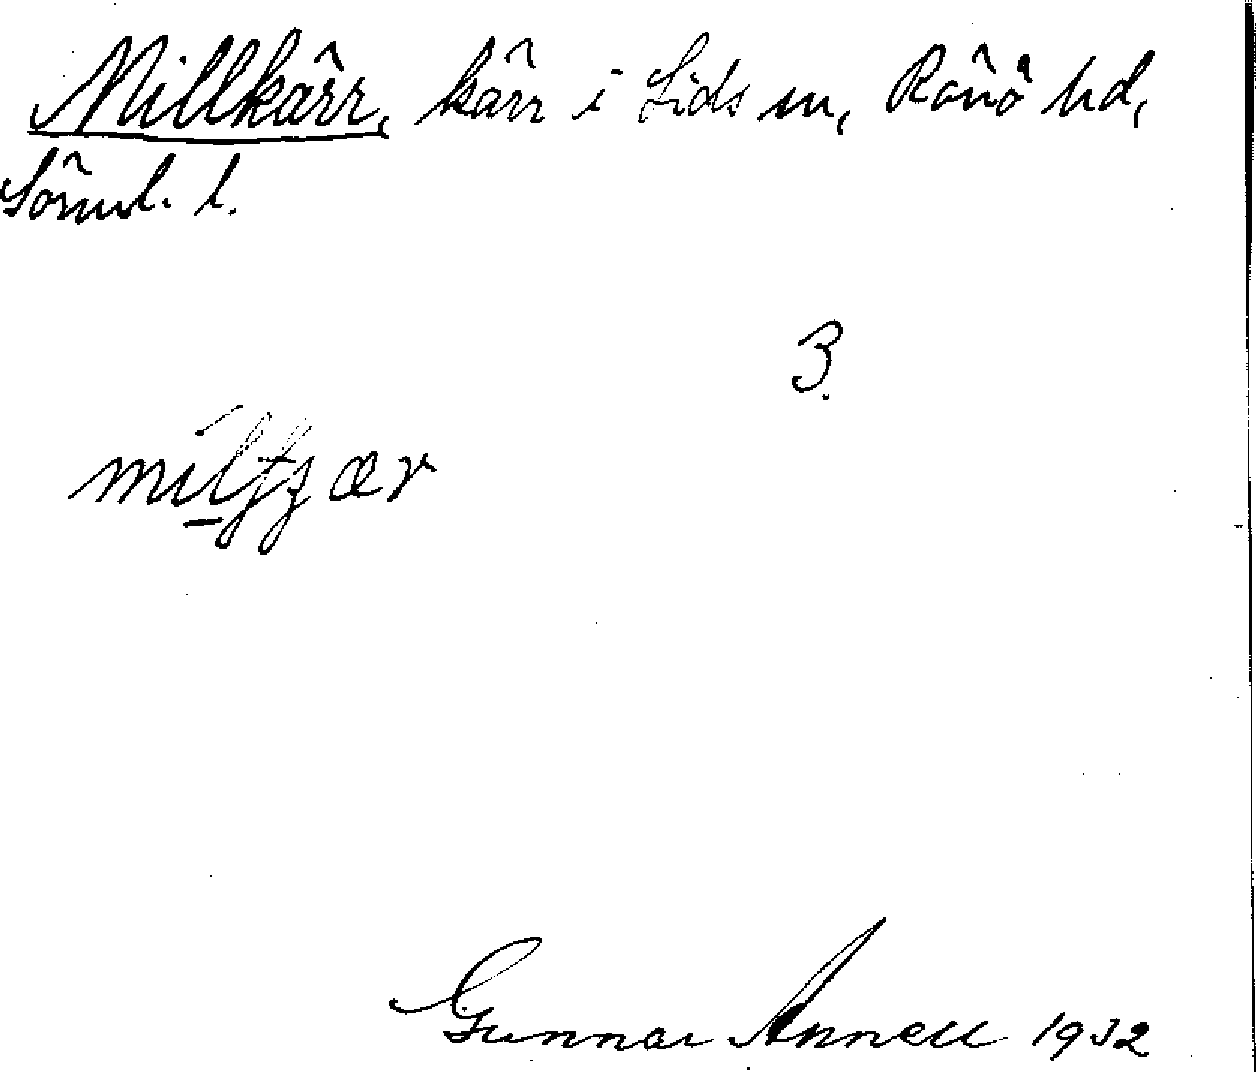 Millkärr, kärr i Lids sn, Rönö hd,
Sörml. l.
3.
Gunnar Annell 1932